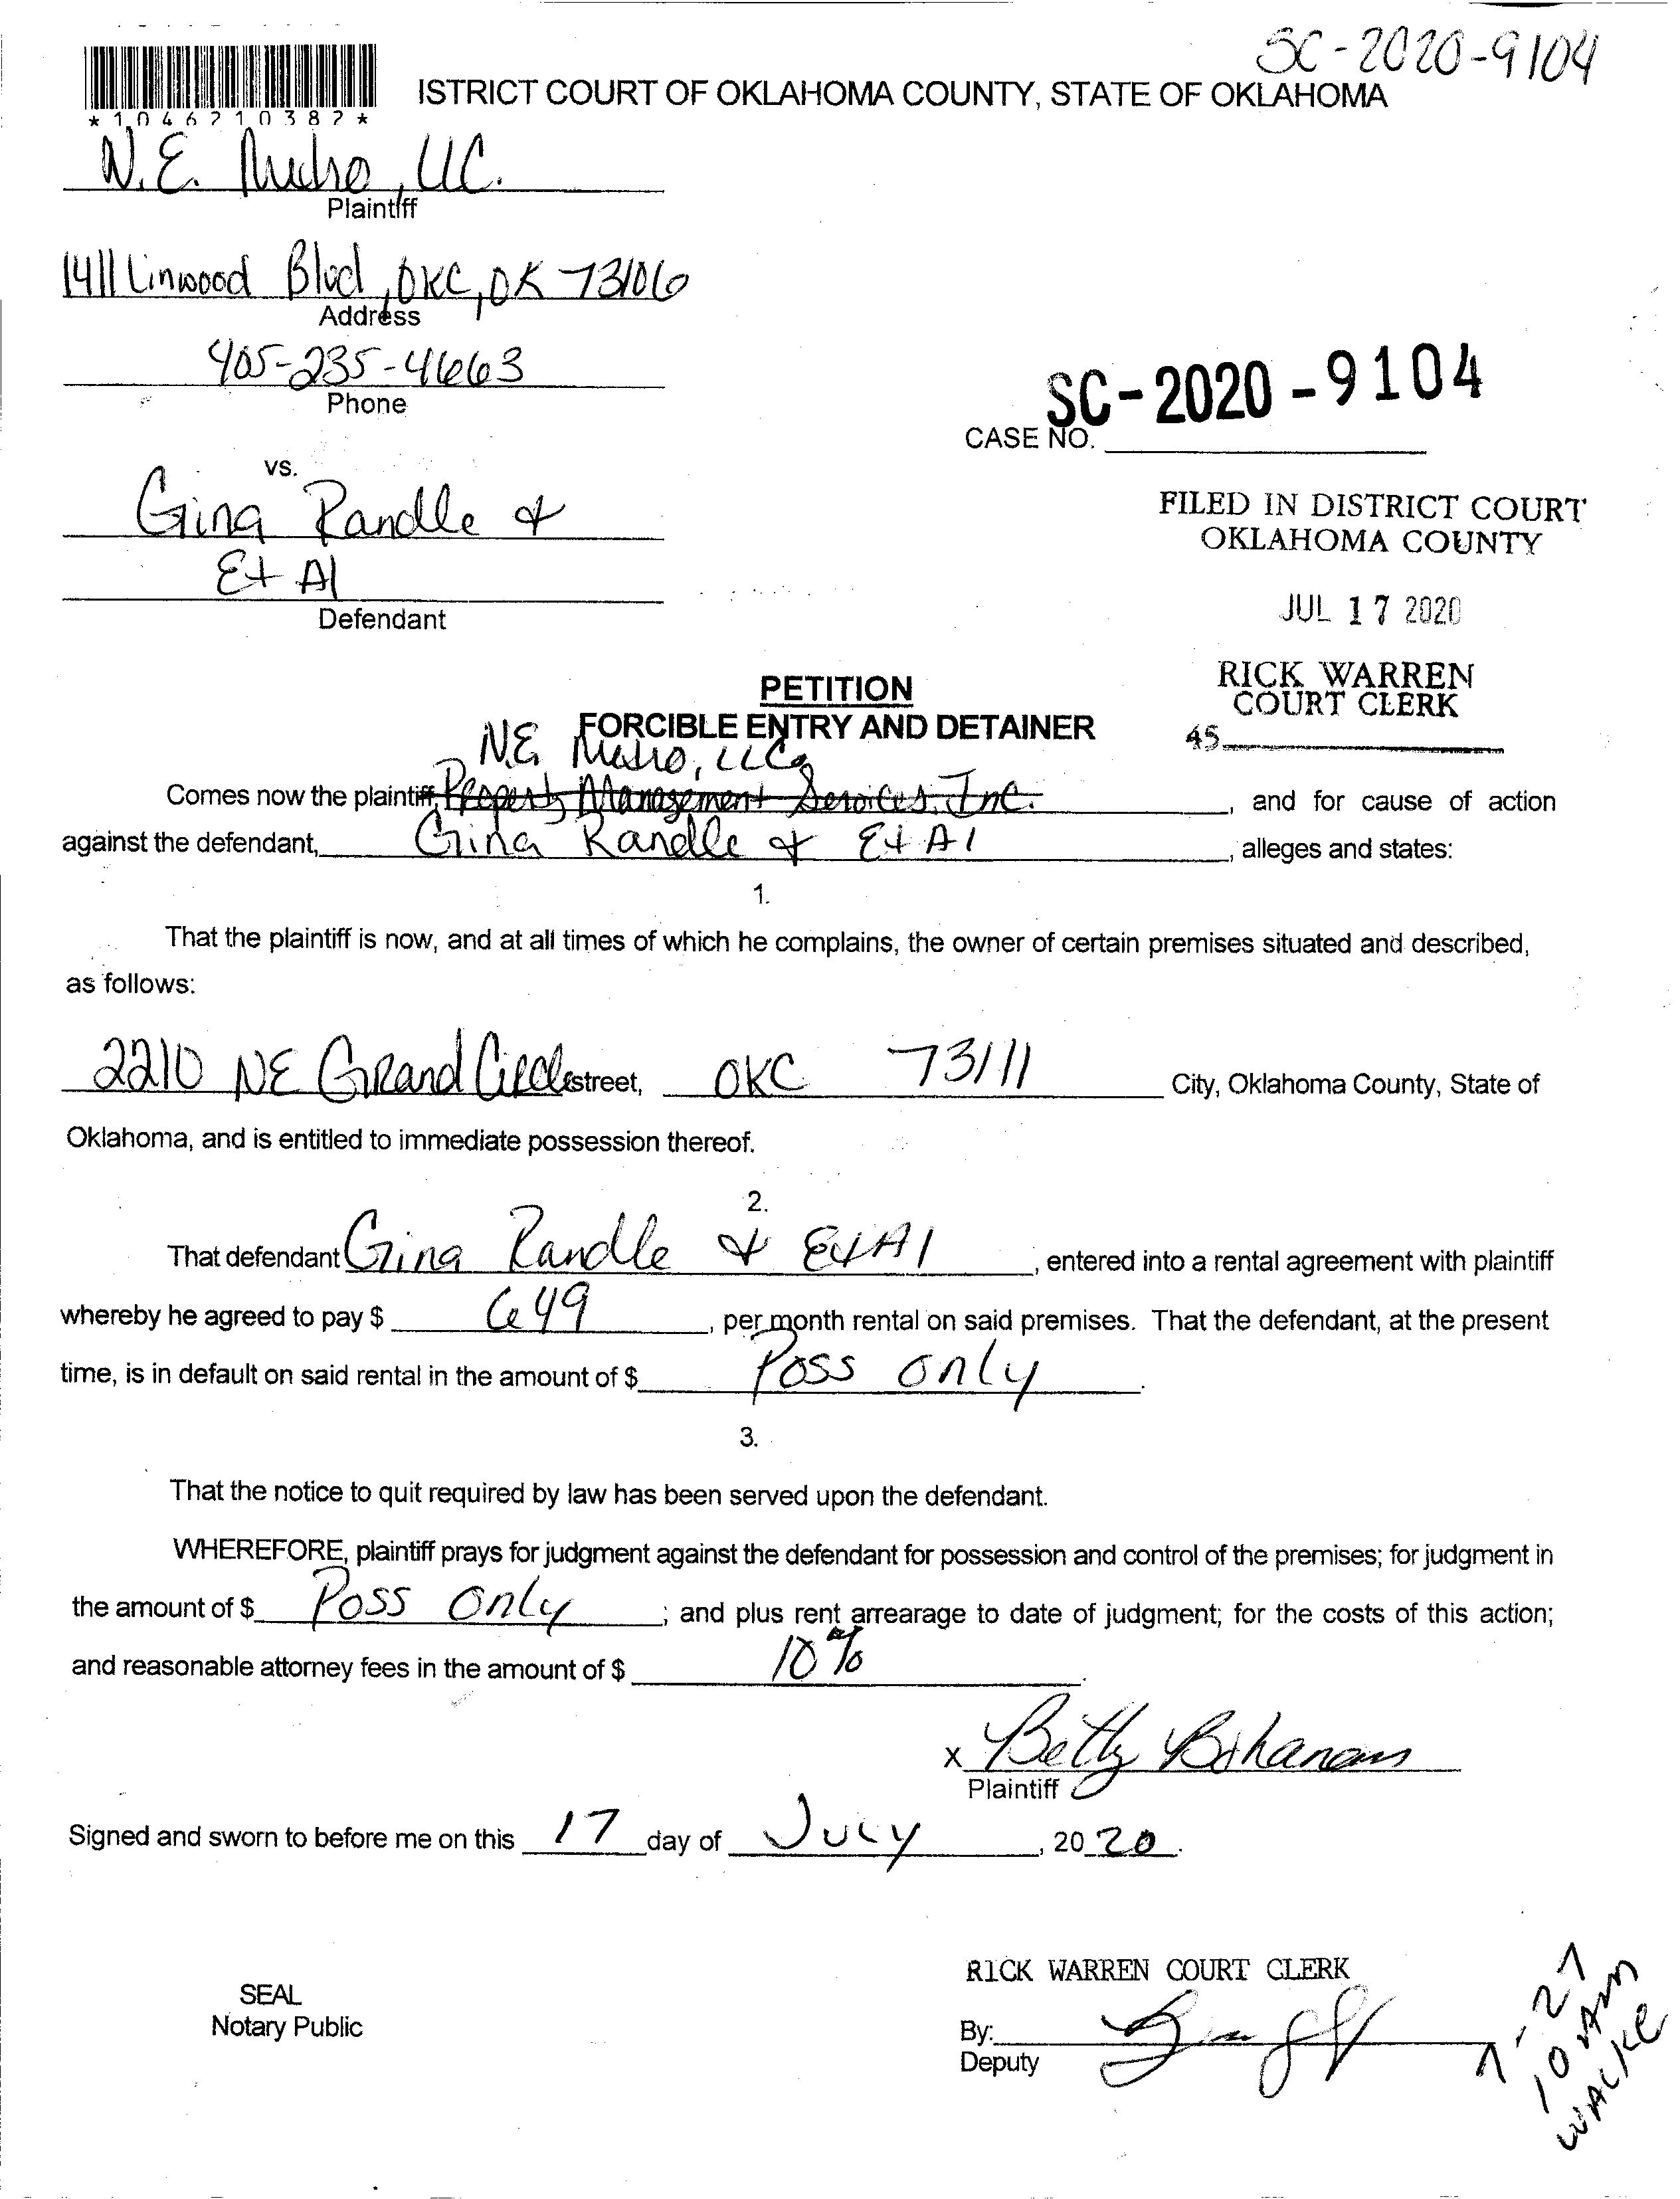 SC-2020-9104
*1046210382*
ISTRICT COURT OF OKLAHOMA COUNTY, STATE OF OKLAHOMA
N.E. Metro, LLC.
Plaintiff
1411 Linwood Blvd, OKC, OK 73106
Address
405-235-4663
Phone
SC-2020-9104
CASE NO.
vs.
Gina Randle &
Et Al
Defendant
FILED IN DISTRICT COURT
OKLAHOMA COUNTY
JUL 17 2020
RICK WARREN
COURT CLERK
45
PETITION
FORCIBLE ENTRY AND DETAINER
N.E. Metro, LLC
Comes now the plaintiff, Property Management Services, Inc. , and for cause of action
against the defendant, Gina Randle & Et Al , alleges and states:
1.
That the plaintiff is now, and at all times of which he complains, the owner of certain premises situated and described,
as follows:
2210 NE Grand Circle street, OKC 73111 City, Oklahoma County, State of
Oklahoma, and is entitled to immediate possession thereof.
2.
That defendant Gina Randle & Et Al , entered into a rental agreement with plaintiff
whereby he agreed to pay $ 649 , per month rental on said premises. That the defendant, at the present
time, is in default on said rental in the amount of $ Poss only .
3.
That the notice to quit required by law has been served upon the defendant.
WHEREFORE, plaintiff prays for judgment against the defendant for possession and control of the premises; for judgment in
the amount of $ Poss only ; and plus rent arrearage to date of judgment; for the costs of this action;
and reasonable attorney fees in the amount of $ 10% .
x Betty Bohanan
Plaintiff
Signed and sworn to before me on this 17 day of July , 20 20 .
SEAL
Notary Public
RICK WARREN COURT CLERK
By:
Deputy
7-27
10 AM